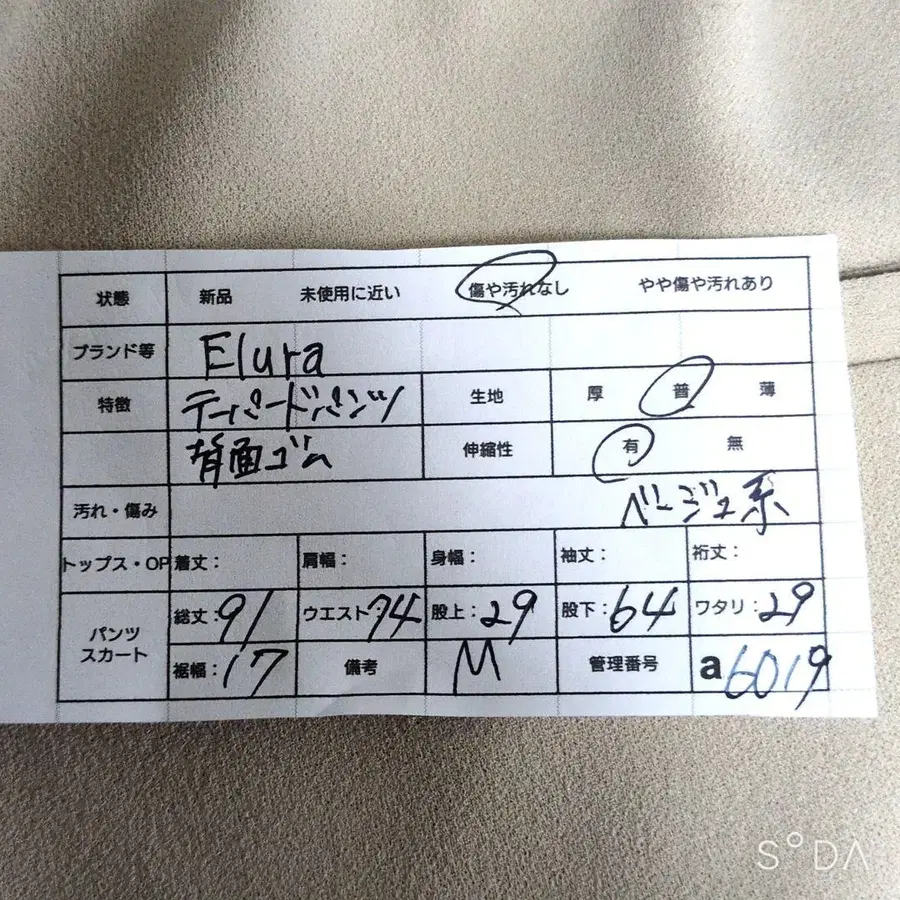 状態 新品 未使用に近い 傷や汚れなし やや傷や汚れあり
ブランド等 Elura
特徴 テーパードパンツ 生地 厚 普 薄
背面ゴム 伸縮性 有 無
汚れ・傷み ベージュ系
トップス・OP 着丈: 肩幅: 身幅: 袖丈: 裄丈:
パンツ スカート 総丈:91 ウエスト:74 股上:29 股下:64 ワタリ:29
裾幅:17 備考 M 管理番号 a6019
SODA